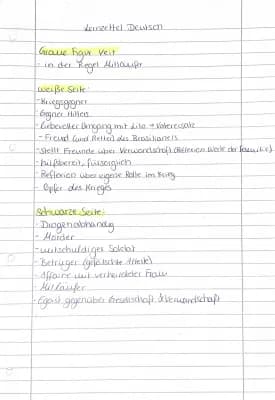 Lernzettel Deutsch
Graue Figur Veit
- in der Regel Mitläufer
weiße Seite:
- Kriegsgegner
- Gegner Hitlers
- Liebevoller Umgang mit Lilo → Vaterersatz
- Freund (und Retter) des Brasilianers
- Stellt Freunde über Verwandschaft (Reflexion Werte der Familie)
- hilfsbereit, fürsorglich
- Reflexion über eigene Rolle im Krieg
- Opfer des Krieges
Schwarze Seite:
- Drogenabhängig
- Mörder
- mitschuldiger Soldat
- Betrüger (gefälschte Atteste)
- Affaire mit verheirateter Frau
- Mitläufer
- Egoist gegenüber Gesellschaft & Verwandschaft